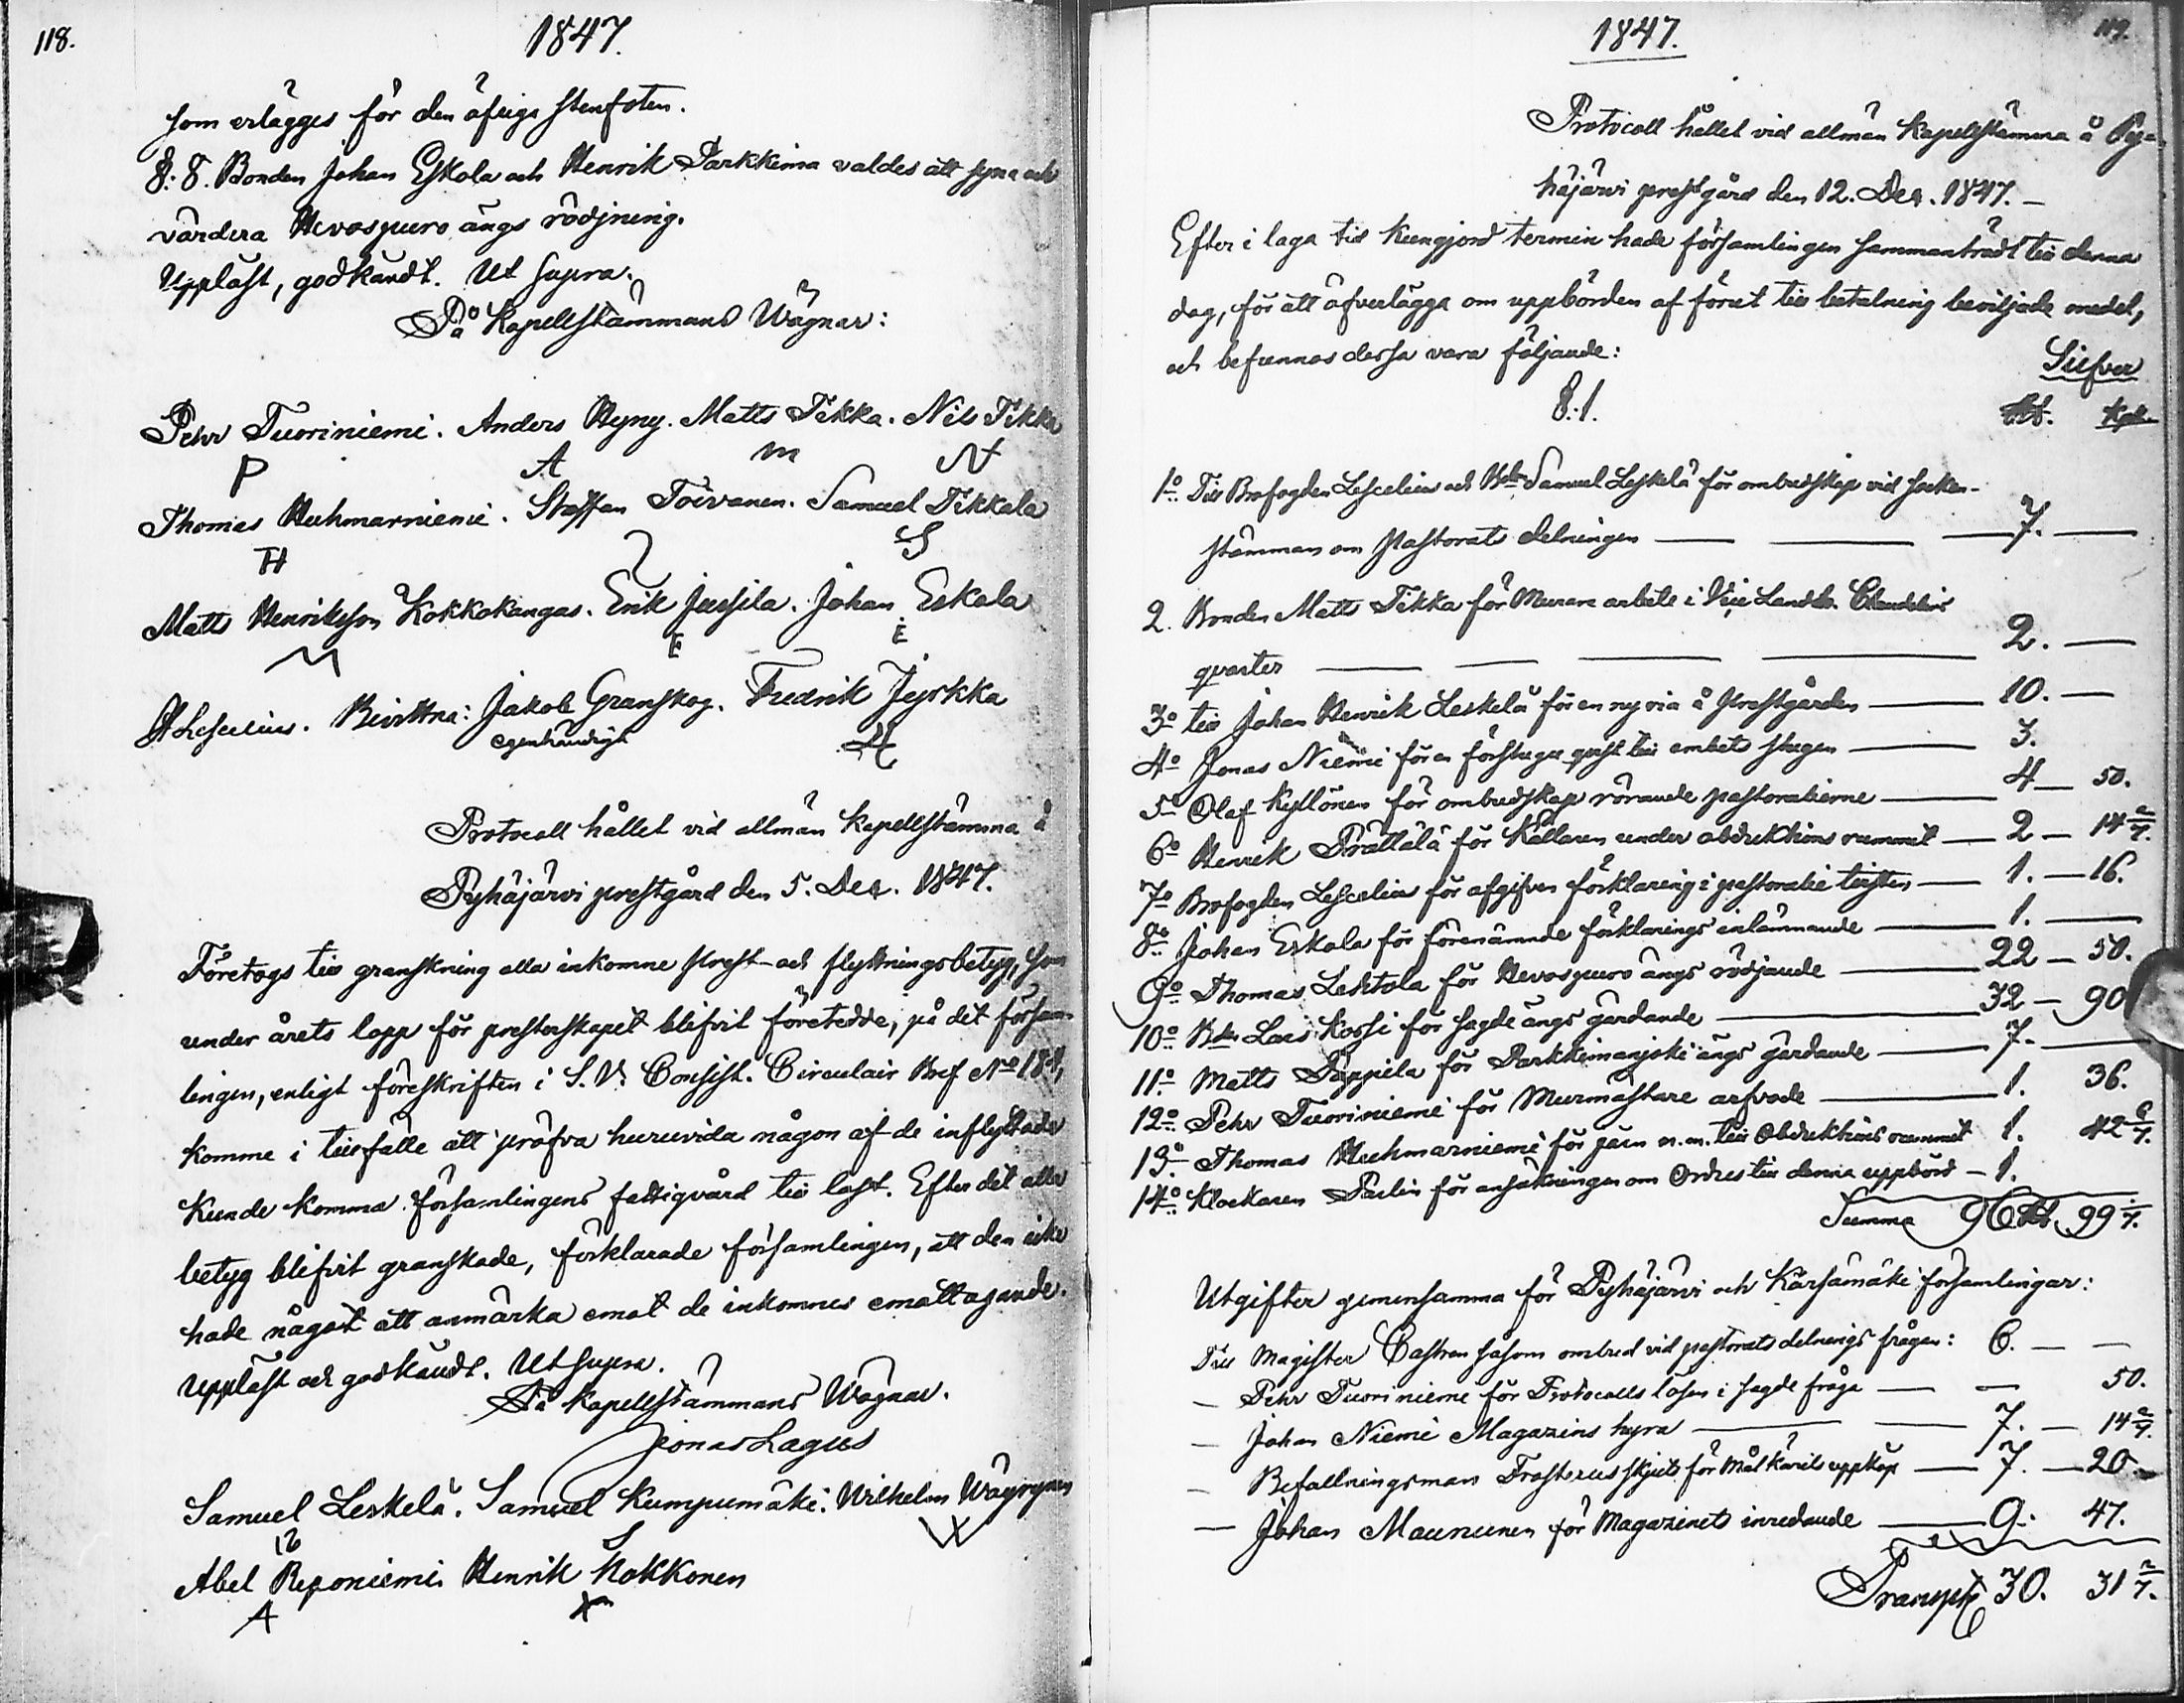 118.
1847.
som erlägges för den öfriga stenfoten.
§: 8. Bonden Johan Eskola och Henrik Parkkima valdes att syna och
värdera Hevospuro ängs rödjning.
Uppläst, godkändt. Ut supra.
På Kapellstämmans Wägnar:
Pehr Tuoriniemi. Anders Hyny. Matts Tikka. Nils Tikka
P A m N
Thomas Huhmarniemi. Staffan Toivanen. Samuel Tikkala
TH S
Matts Henriksson Kokkokangas. Erik Jussila. Johan Eskola
M E E
A Lescelius. Bevittna: Jakob Granskog. Fredrik Jyrkkä
egenhändigt
Protocoll hållet vid allmän Kapellstämma å
Pyhäjärvi prestgård den 5. Dec. 1847.
Företogs till granskning alla inkomne prest- och flyttningsbetyg, som
under årets lopp för presterskapet blifvit företedde, på det försam-
lingen, enligt föreskriften i S. V. Consist. Circulair Bref No 184,
komme i tillfälle att pröfva huruvida någon af de inflyttade
kunde komma församlingens fattigvård till last. Efter det alla
betyg blifvit granskade, förklarade församlingen, att den icke
hade något att anmärka emot de inkomnes emottagande.
Uppläst och godkändt. Ut supra.
På Kapellstämmans Wägnar.
Jonas Lagus
Samuel Leskelä. Samuel Kumpumäki. Wilhelm Wäyrynen
S W
Abel Reponiemi Henrik Kokkonen
A
119.
1847.
Protocoll hållet vid allmän Kapellstämma å Py-
häjärvi prestgård den 12. Dec. 1847. —
Efter i laga tid kungjord termin hade församlingen sammanträdt till denna
dag, för att öfverlägga om uppbörden af förut till betalning beviljade medel,
och befunnos dessa vara följande:
Silfver
§:1. Rbl. Kpk.
1o Till Brofogden Lescelius och Bdn Samuel Leskelä för ombudskap vid socken-
stämman om Pastorats delningen — 7. —
2. Bonden Matts Tikka för Murare arbete i Vice Landtm.
qvarter — 2. —
3o till Johan Henrik Leskelä för en ny ria å Prestgården — 10. —
4o Jonas Niemi för en förstugu qvist till embets stugan — 3.
5o Olof Kyllönen för ombudskap rörande pastoratierne — 4 — 50.
6o Henrik Prättälä för Källaren under obduktions rummet — 2 — 14 2/7.
7o Brofogden Lescelius för afgifven förklaring i pastoratie tvisten — 1. — 16.
8o Johan Eskola för förenämnde förklarings inlämnande — 1. —
9o Thomas Lehtola för Hevospuro ängs rödjande — 22 — 50.
10o Bdn Lars Kossi för sagde ängs gärdande — 32 — 90
11o Matts Pippila för Parkkimanjoki ängs gärdande — 7. —
12o Pehr Tuoriniemi för Murmästare arfvode — 1. 36.
13o Thomas Huhmarniemi för järn m.m. till Obduktions rummet 1. 42 6/7.
14o Klockaren Paulin för ansökningen om Ordres till denna uppbörd — 1.
Summa 96 Rbl. 99 1/7.
Utgifter gemensamma för Pyhäjärvi och Kärsämäki församlingar:
Till Magister Castren såsom ombud vid pastorats delnings frågan: 6. — —
— Pehr Tuoriniemi för Protocolls lösen i sagde fråga — — 50.
— Johan Niemi Magazins hyra — 7. — 14 2/7.
— Befallningsman Frosterus skjuts för Målkärils uppköp — 7. — 20 —
— Johan Maununen för Magazinets inredande — 9. 47.
Transport 30. 31 2/7.